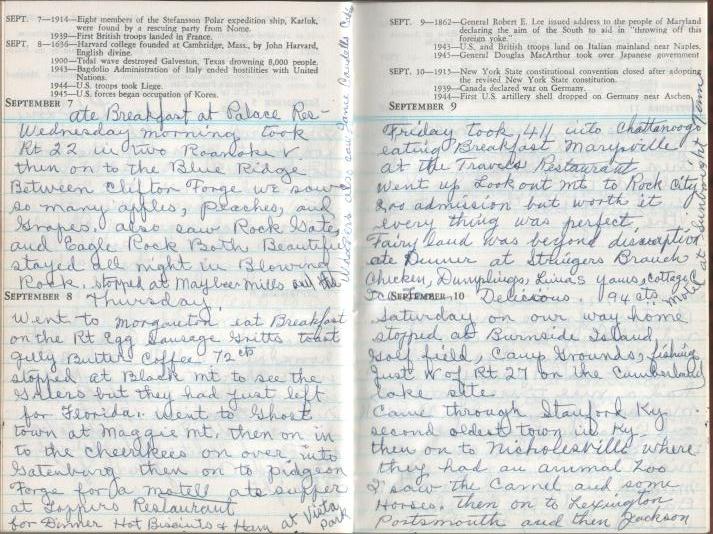 SEPT. 7—1914—Eight members of the Stefansson Polar expedition ship, Karluk,
were found by a rescuing party from Nome.
1939—First British troops landed in France.
SEPT. 8—1636—Harvard college founded at Cambridge, Mass., by John Harvard,
English divine.
1900—Tidal wave destroyed Galveston, Texas, drowning 8,000 people.
1943—Bagdolio Administration of Italy ended hostilities with United
Nations.
1944—U.S. troops took Liege.
1945—U.S. forces began occupation of Korea.
SEPTEMBER 7
ate Breakfast at Palace Res-
Wednesday morning took
Rt 22 in two Roanoke V.
then on to the Blue Ridge
Between Clifton Forge we saw
so many apples, Peaches, and
Grapes. also saw Rock Gate
and Eagle Rock Both Beautiful
stayed all night in Blowing
Rock. stopped at Maybeer mills
also saw
SEPTEMBER 8 Thursday
Went to Morganton eat Breakfast
on the Rt Egg Sausage Gritts toast
gelly Butter Coffee 72 cts
stopped at Black mt to see the
but they had just left
for Florida. went to Ghost
town at Maggie mt. then on in
to the cherekees on over into
Gatenburg then on to pidgeon
Forge for a motell ate supper
at Toppers Restaurant
for Dinner Hot Biscuits & Ham at Vista
Park
SEPT. 9—1862—General Robert E. Lee issued address to the people of Maryland
declaring the aim of the South to aid in "throwing off this
foreign yoke."
1943—U.S. and British troops land on Italian mainland near Naples.
1945—General Douglas MacArthur took over Japanese government
SEPT. 10—1915—New York State constitutional convention closed after adopting
the revised New York State constitution.
1939—Canada declared war on Germany.
1944—First U.S. artillery shell dropped on Germany near Aachen.
SEPTEMBER 9
Friday took 411 into Chattanooga
eating Breakfast Marysville
at the Travels Restaurant
went up Lookout mt to Rock City
200 admission but worth it
every thing was perfect,
Fairy land was beyond discription
ate Dinner at Struegers Branch
Chicken, Dumplings, Limas yams, cottage C
SEPTEMBER 10 Delecious. 94 cts.
motel at Tenn
Saturday on our way home
stopped at Burnside Island,
Golf field, Camp Grounds, fishing
Just W of Rt 27 on the Cumberland
lake site
Came through Stanfork Ky
second oldest town in Ky.
then on to Nicholesville where
they had an animal Zoo
I saw the Camel and some
Horses. then on to Lexington
Portsmouth and then Jackson